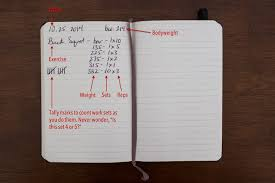 Date
10.25.2014
bw: 214
Bodyweight
Back Squat - bar - 1x10
135 - 1x5
225 - 3
285 - 2
315 - 1x1
Exercise
352 - 10x3
Weight
Sets
Reps
Tally marks to count work sets as
you do them. Never wonder, "Is
this set 4 or 5?"